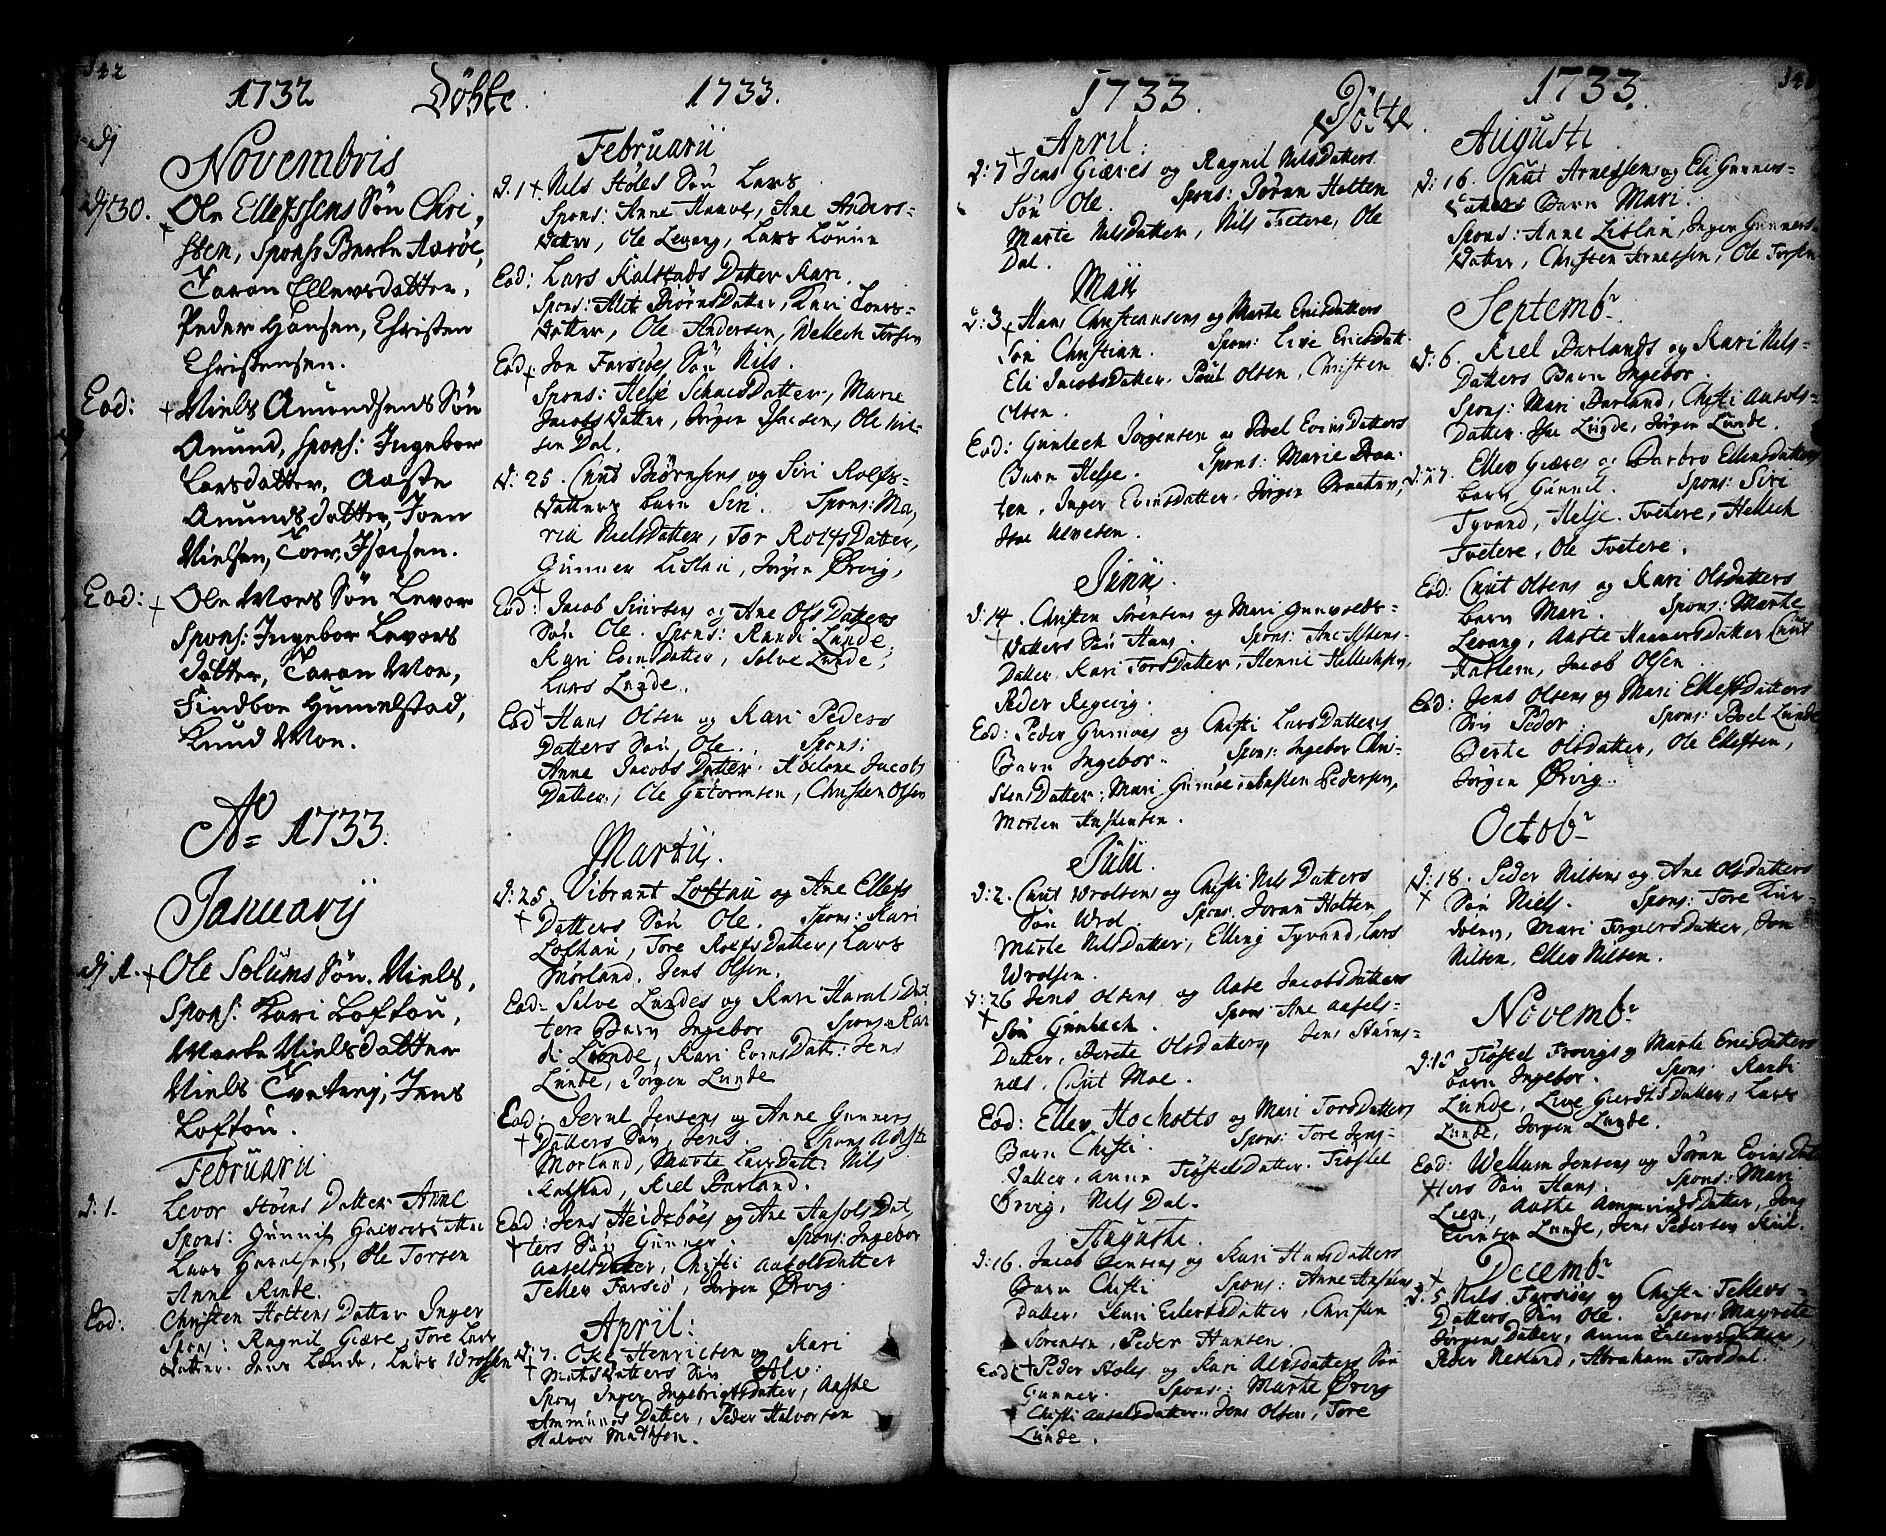 342
1732 Döbte 1733.
Novembris
Dj 30. Ole Ellefssens Søn Chri-
sten, Spons: Berte Aarøe,
Taran Ellevsdatter,
Peder Hansen, Christen
Christensen.
Eod: Niels Amundsens Søn
Amund, spons: Ingebor
Larsdatter, Aaste
Amundsdatter, Joen
Nielsen, Torv. Isacsen.
Eod: Ole Moes Søn Levor
Spons: Ingebor Levors
datter, Taran Moe,
Findboe Hummelstad,
Knud Moe.
Ao 1733.
Januarij
Dj 1. Ole Solums Søn. Niels,
Spons: Kari Loftou,
Marte Nielsdatter
Niels Tveterej, Jens
Loftou.
Februarii
D: 1. Levor Støens Datter Anne
Spons: Gunnil
Lars, Ole Torsen
Anne Rinde.
Eod: Christen Holtens Datter Inger
Spons: Ragnil Giære, Tore Lars
Datter. Jens Lunde, Lars Wrolsen
Februarii
D. 1 Nils Høles Søn Lars
Spons: Anne Haave, Ane Anders-
datter, Ole Levang, Lars
Eod: Lars Kalstads Datter Kari.
Spons: Alit BiørnsDatter, Kari Lars-
datter, Ole Andersen, Wellech Torsen
Eod Jon Farsiøes Søn Nils.
Spons: Helje Datter, Marie
Jacobsdatter, Jørgen Isacsen, Ole Nil-
sen Dal.
D: 25. Cnud Biørnsens og Siri Rolfs-
datters barn Siri. Spons: Ma-
ria NielsDatter, Tor RolfsDatter,
Gunner Lislau, Jørgen Ørvig,
Eod: Jacob Siursens og Ane OlsDatters
Søn Ole. Spons: Randi Lunde,
Kari EvinsDatter, Solve Lunde,
Lars Lunde.
Eod Hans Olsen og Kari Peders
Datters Søn Ole. Spons:
Anne Jacobs Datter, Abelone Jacobs
Datter, Ole Gutormsen, Christen Olsen
Martii.
D: 25. Vibrant Loftau og Ane Ellefs
Datters Søn Ole. Spons: Kari
Loftau, Tore RolfsDatter, Lars
Morland, Jens Olsen.
Eod: Solve Lundes og Kari Dat
ters Barn Ingebor Spons: Ran
di Lunde, Kari EvinsDatt: Jens
Lunde, Jørgen Lunde
Eod: Jensens og Anne Gunners
Datters Søn Jens. Spons Aaste
Morland, Marte LarsDatt: Nils
Kalstad, Kiel Barland.
Eod: Jens Heidebøes og Ane AasolsDat
ters Søn Gunner. Spons: Ingebor
AasolsDatter, Christi Aasolsdatter
Tellev Farsiø, Jørgen Ørvig.
April:
D: 7. Ole Henricsen og Kari
MatsDatters Søn Alv:
Spons Inger IngebrigtsDatter, Aaste
Ammunds Datter, Peder Halvorsen
Halvor Mathsen.
1733 Döbte 1733.
April:
D: 7 Jens Giæres og Ragnil NilsDatters
Søn Ole. Spons: Jøran Holten
Marte NilsDatter, Nils Tvetere, Ole
Dal.
Maii
D: 3 Hans Christensens og Marte Ericsdatters
Søn Christian. Spons: Live EricsDatt
Eli JacobsDatter. Poul Olsen, Christen
Olsen.
Eod: Gunlech Jørgensen og Boel EvinsDatters
Barn Helje. Spons: Marie Braa-
ten, Inger Evinsdatter, Jørgen Braaten,
Isac Ulvesen.
Junii.
D: 14. Christen Sørensens og Mari Gunvolds-
Datters Søn Hans. Spons:
Datter, Kari TorsDatter, Henric Hellechsen,
Peder Regevig.
Eod: Peder Gumøes og Christi LarsDatters
Barn Ingebor. Spons: Ingebor Chri-
stensDatter, Mari Gumøe, Austen Pedersen,
Morten Austensen.
Julii.
D: 2. Cnut Wrolsens og Christi NilsDatters
Søn Wrol. Spons: Joran Holten
Marte NilsDatter, Elling Tyvand, Lars
Wrolsen.
D: 26 Jens Olsens og Aase JacobsDatters
Søn Gunlech. Spons Ane Aasols-
Datter, Berete Olsdatter, Jens
næs. Cnut Moe.
Eod: Ellev Hocholts og Mari TorsDatters
Barn Christi. Spons: Tore Jens-
datter, Anne TiøstelsDatter. Tiøstel
Ørvig, Nils Dal.
Augusti.
D: 16. Jacob Jensens og Kari Hansdatters
Barn Christi Spons: Anne
datter, Kari EilertsDatter, Christen
Sørensen, Peder Hansen.
Eod: Peder Høles og Kari Alvsdatters Søn
Gunner. Spons: Marte Ørvig
Christi Aasolsdatter. Jens Olsen, Tore
Lunde.
1733.
Augusti
D: 16. Cnut Arnessens og Eli Gunners-
datters Barn Mari.
Spons: Anne Lislau, Inger Gunners-
datter, Christen Arnessen, Ole Torsen
Septembr
D: 6. Kiel Barlands og Kari Nils-
Datters Barn Ingebor.
Spons: Mari Barland, Christi Aasols-
Datter. Isac Lunde, Jørgen Lunde.
D: 27. Ellev Giæres og Barbro Ellensdatters
barn Gunnil. Spons: Siri
Tyvand, Helje Tvetere, Hellech
Tvetere, Ole Tvetere.
Eod: Cnut Olsens og Kari Olsdatters
barn Mari. Spons: Marte
Levang, Aaste HaavorsDatter, Cnut
Haslem, Jacob Olsen.
Eod: Jens Olsens og Mari EllefsDatters
Søn Peder. Spons: Boel Lunde
Berte Olsdatter, Ole Ellefsen,
Jørgen Ørvig.
Octobr
D: 18. Peder Nilsens og Ane Olsdatters
Søn Niels. Spons: Tore
Mari TorgiersDatter, Jon
Nilsen, Ellev Nilsen.
Novembr
Tiøstel Ørvigs og Marte Ericsdatters
barn Ingebor. Spons Karti
Lunde, Live GiertsDatter, Lars
Lunde, Jørgen Lunde.
Eod: Wellum Jensens og Jøran EvinsDat
ters Søn Hans. Spons: Mari
Lien, Aaste AmmundsDatter, Jens
Evensen Lunde, Jens Pedersen
Decembr
D. 5. Nils Farsiøes og Christi Tellevs-
Datters Søn Ole. Spons: Margrete
JørgensDatter, Anne Datter,
Peder Neslund, Abraham Torsdal.